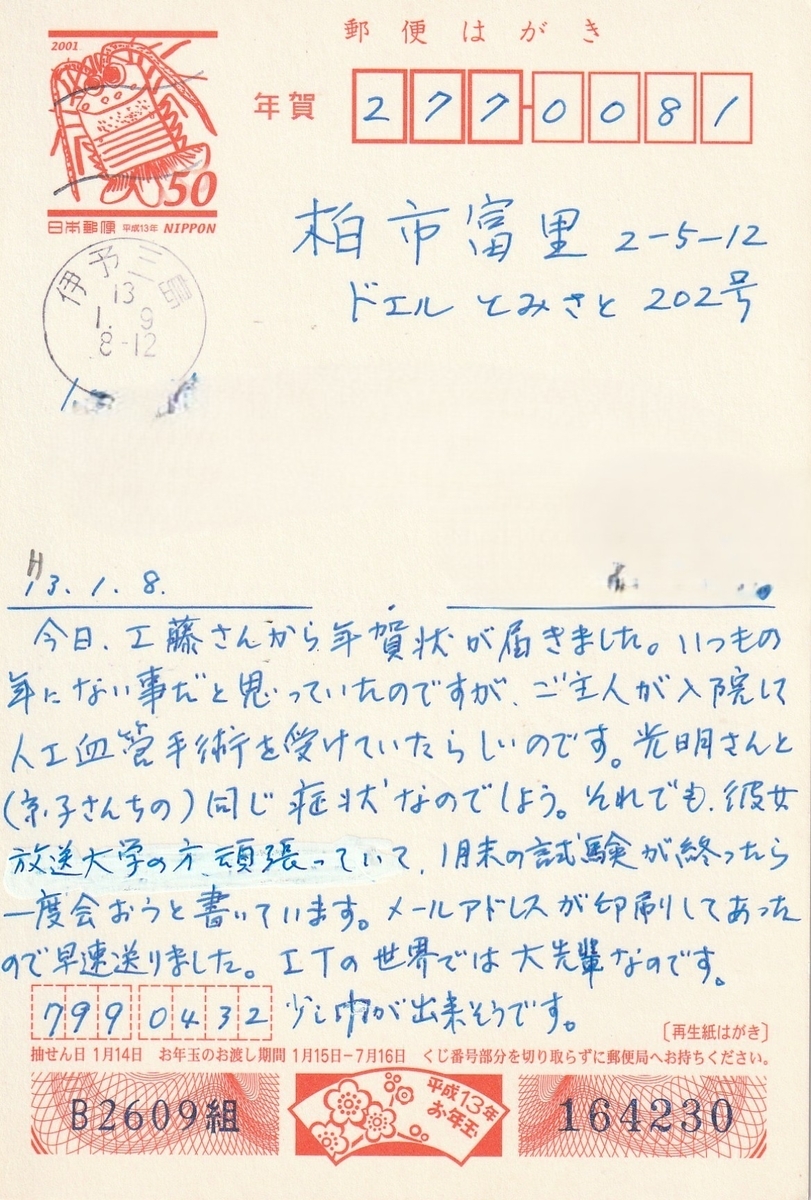 郵便はがき
2001
年賀
277-0081
50
日本郵便 平成13年 NIPPON
柏市富里 2-5-12
ドエル とみさと 202号
伊予三島
13
1. 9
8-12
H13.1.8.
今日、工藤さんから年賀状が届きました。いつもの
年にない事だと思っていたのですが、ご主人が入院して
人工血管手術を受けていたらしいのです。光明さんと
(京子さんちの)同じ症状なのでしょう。それでも、彼女
放送大学の方、頑張っていて、1月末の試験が終ったら
一度会おうと書いています。メールアドレスが印刷してあった
ので早速送りました。ITの世界では大先輩なのです。
799 0432 少し巾が出来そうです。
〔再生紙はがき〕
抽せん日 1月14日 お年玉のお渡し期間 1月15日-7月16日 くじ番号部分を切り取らずに郵便局へお持ちください。
B2609組
平成13年
お年玉
164230